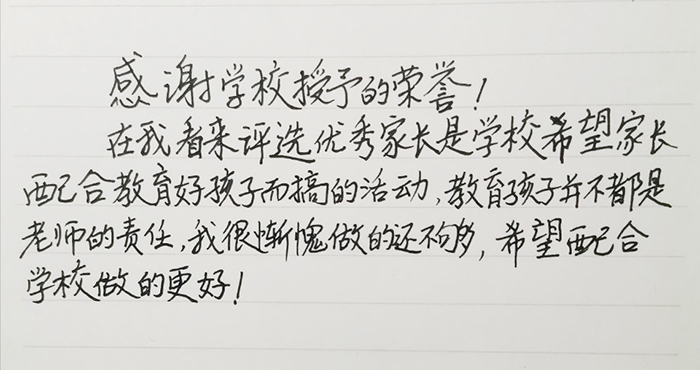 感谢学校授予的荣誉!
在我看来评选优秀家长是学校希望家长
配合教育好孩子而搞的活动,教育孩子并不都是
老师的责任,我很惭愧做的还不够,希望配合
学校做的更好!